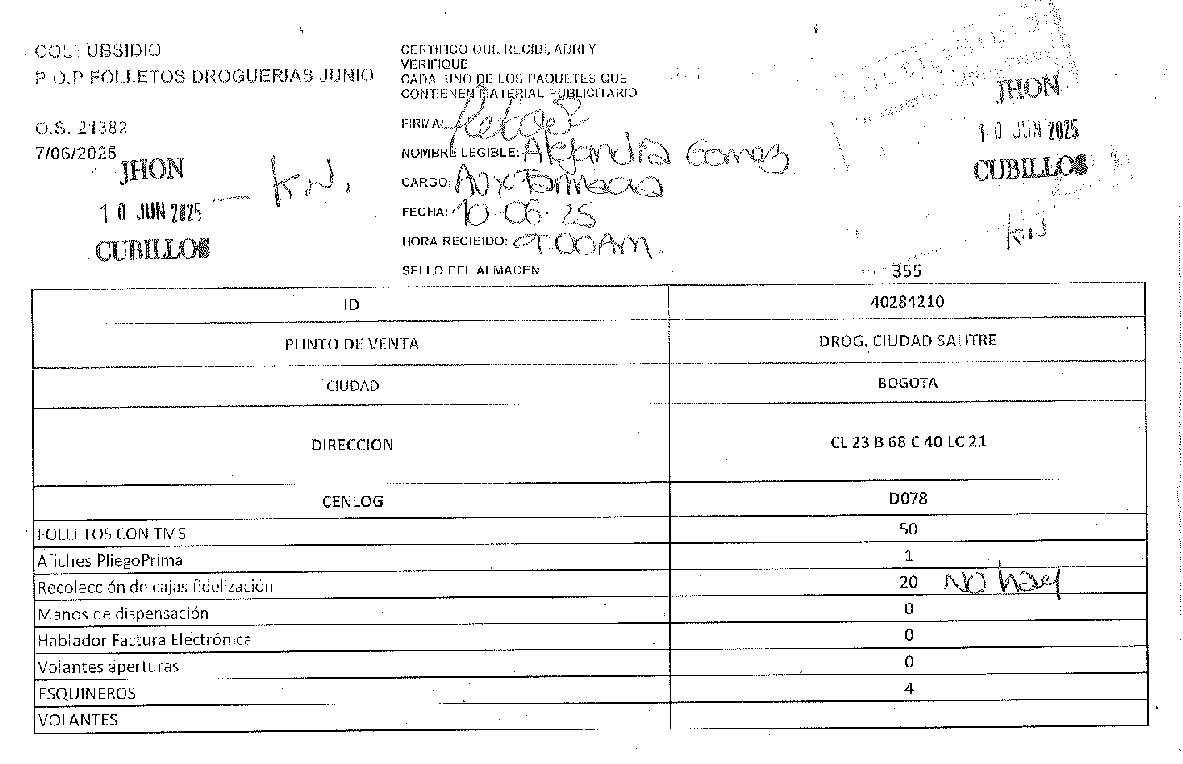 COLSUBSIDIO
P.O.P FOLLETOS DROGUERIAS JUNIO
O.S. 21382
7/06/2025
JHON
10 JUN 2025
CUBILLOS
CERTIFICO QUE RECIBI, ABRI Y
VERIFIQUE
CADA UNO DE LOS PAQUETES QUE
CONTIENEN MATERIAL PUBLICITARIO
FIRMA:
NOMBRE LEGIBLE: Alejandra Gomez
CARGO: Aux Farmacia
FECHA: 10-06-25
HORA RECIBIDO: 9:00AM.
SELLO DEL ALMACEN
JHON
10 JUN 2025
CUBILLOS
355
ID 40281210
PUNTO DE VENTA DROG. CIUDAD SALITRE
CIUDAD BOGOTA
DIRECCION CL 23 B 68 C 40 LC 21
CENLOG D078
FOLLETOS CON TMS 50
Afiches PliegoPrima 1
Recolección de cajas fidelización 20 No hay
Manos de dispensación 0
Hablador Factura Electrónica 0
Volantes aperturas 0
ESQUINEROS 4
VOLANTES